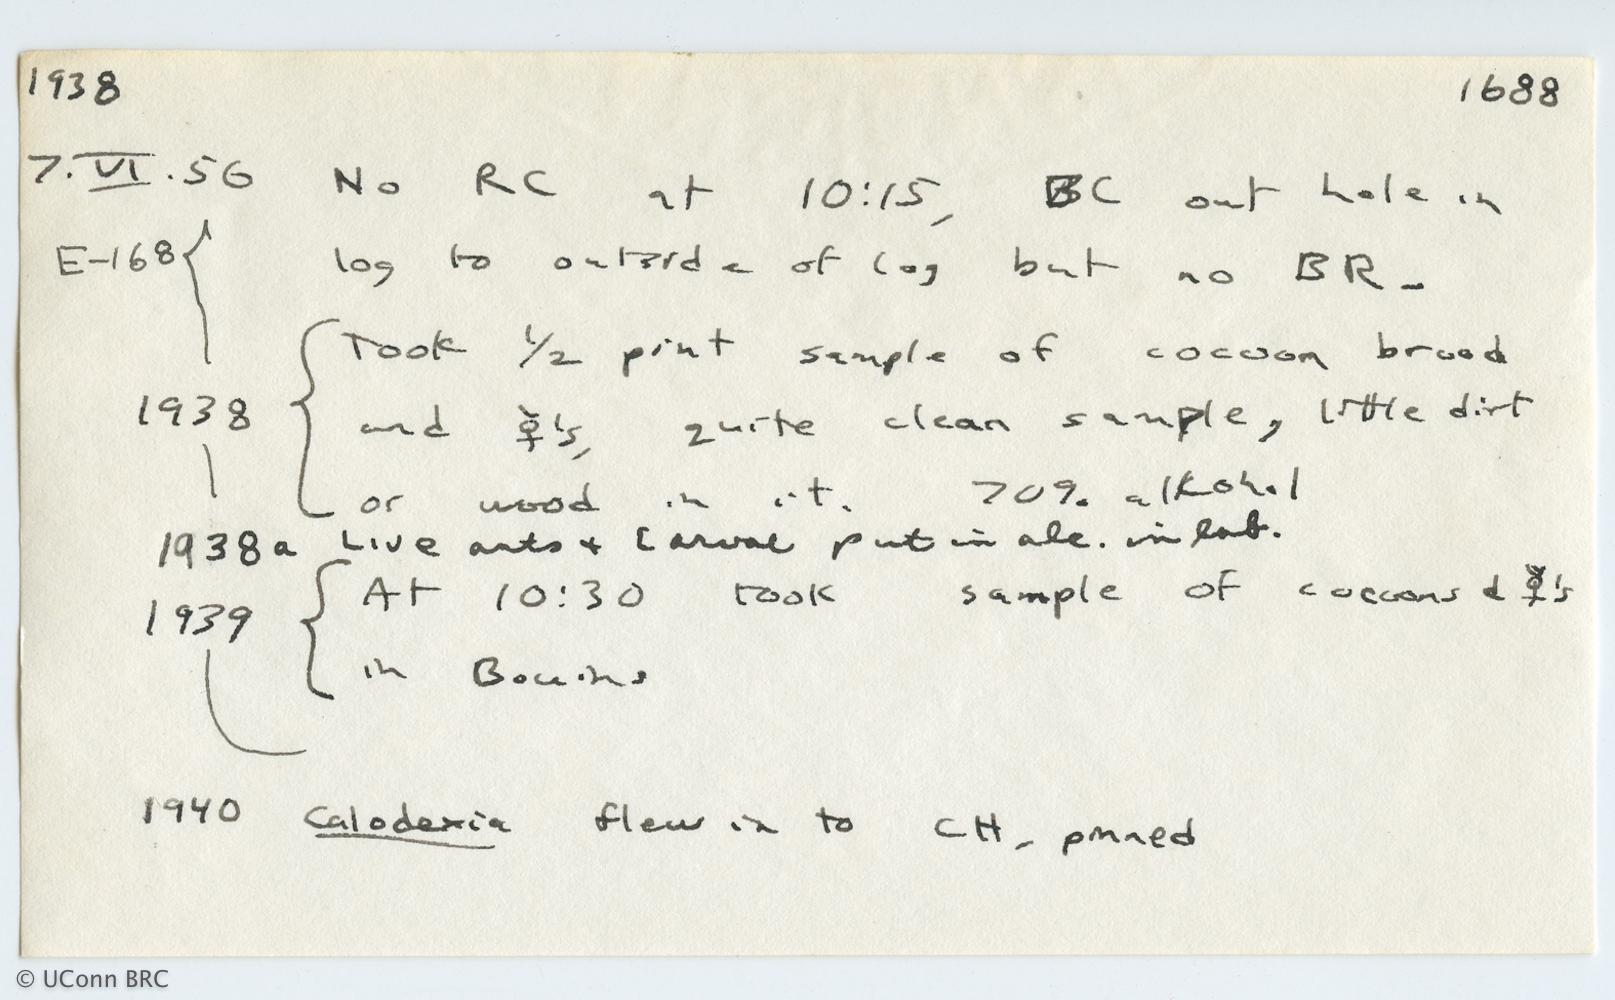 1938 1688
7.VI.56 No RC at 10:15, BC out hole in
E-168 log to outside of log but no BR -
Took 1/2 pint sample of cocoon brood
1938 and ☿'s, quite clean sample, little dirt
or wood in it. 70% alkohol
1938a Live ants + larvae put in alc. in lab.
At 10:30 took sample of cocoons & ☿'s
1939
in Bouins
1940 Calodexia flew in to CH, pinned
© UConn BRC